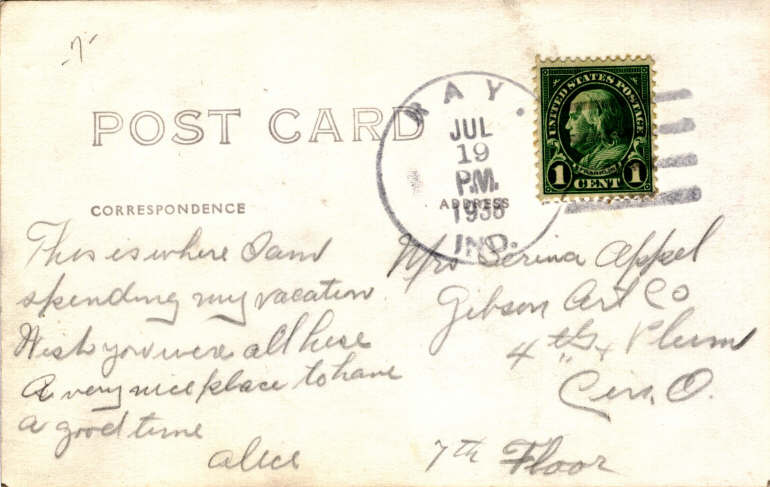 -7-
POST CARD
CORRESPONDENCE
RAY.
JUL
19
P.M.
ADDRESS
IND.
UNITED STATES POSTAGE
FRANKLIN
1 CENT 1
This is where I am
spending my vacation
Wish you were all here
A very nice place to have
a good time
Alice
Mrs Serina Appel
Gibson Art Co
4th + Plum
Cin, O.
7th Floor